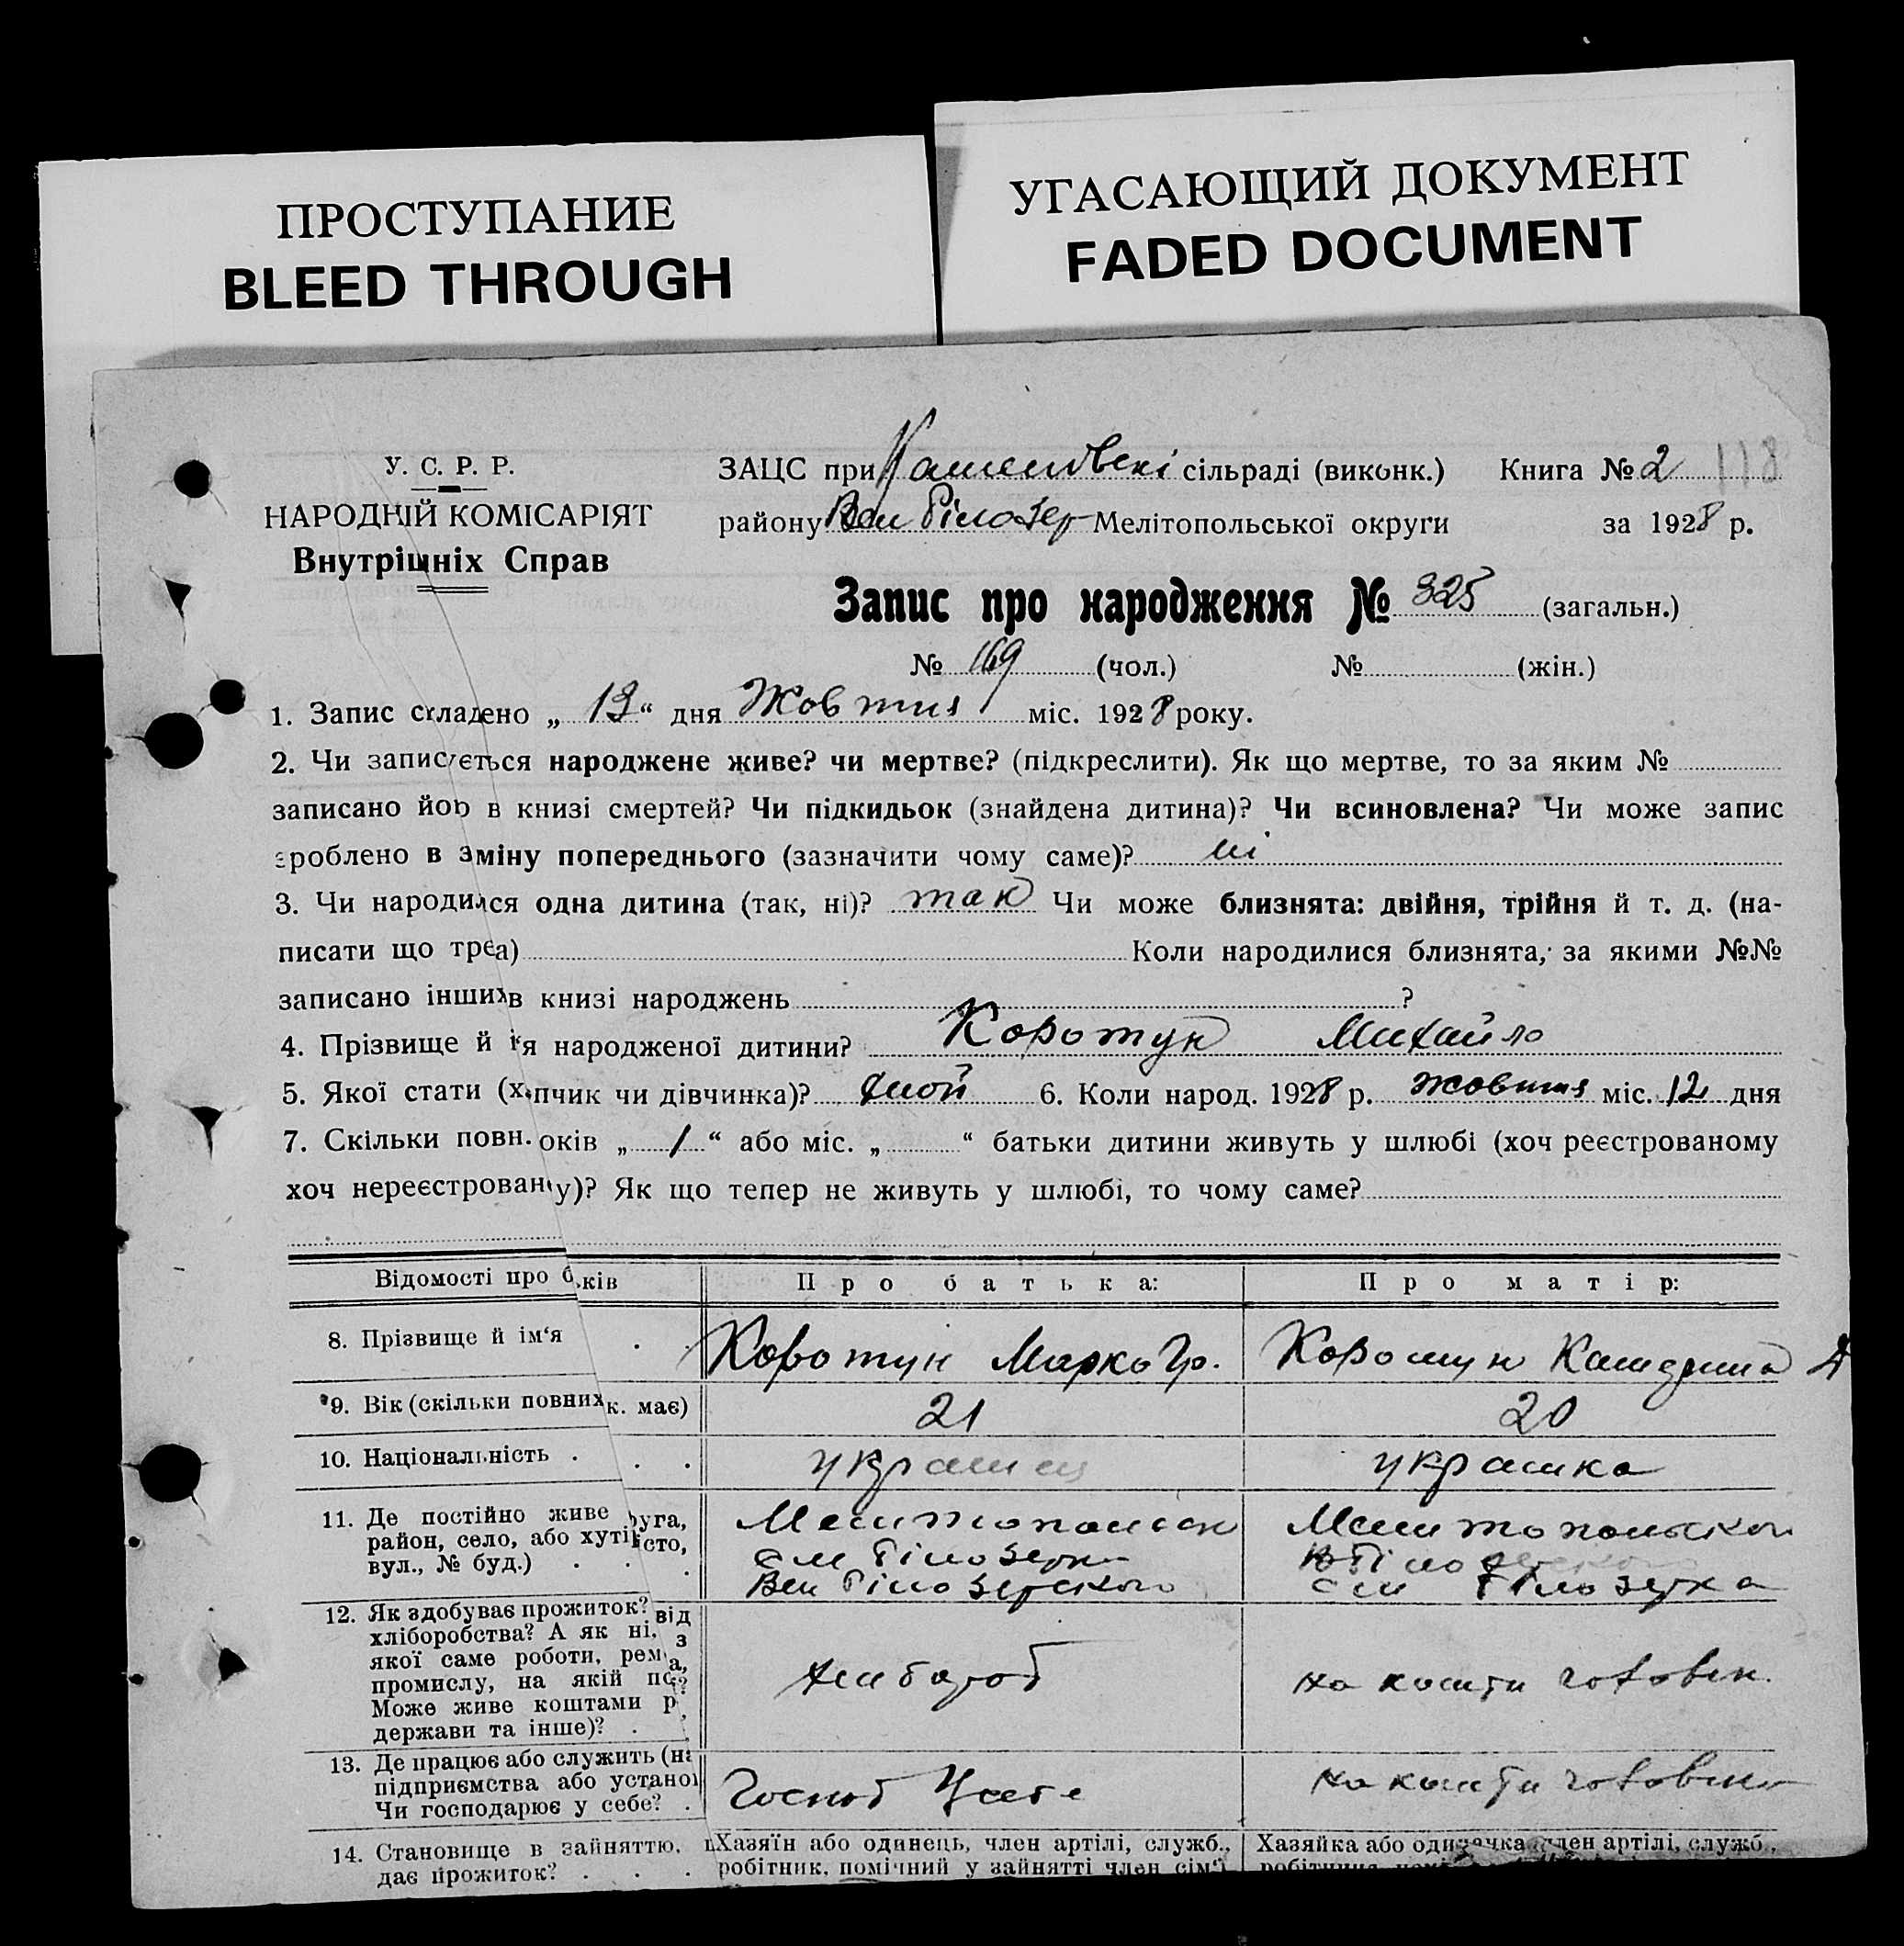 ПРОСТУПАНИЕ
BLEED THROUGH
УГАСАЮЩИЙ ДОКУМЕНТ
FADED DOCUMENT
У. С. Р. Р.
НАРОДНІЙ КОМІСАРІЯТ
Внутрішніх Справ
ЗАЦС при сільраді (виконк.) Книга № 2 118
району Вел Білозер Мелітопольської округи за 1928 р.
Запис про народження № 325 (загальн.)
№ 169 (чол.) № (жін.)
1. Запис складено „ 13 “ дня Жовтня міс. 1928 року.
2. Чи записується народжене живе? чи мертве? (підкреслити). Як що мертве, то за яким №
записано його в книзі смертей? Чи підкидьок (знайдена дитина)? Чи всиновлена? Чи може запис
зроблено в зміну попереднього (зазначити чому саме)? ні
3. Чи народилася одна дитина (так, ні)? так Чи може близнята: двійня, трійня й т. д. (на-
писати що треа) Коли народилися близнята, за якими №№
записано інших в книзі народжень ?
4. Прізвище й ім‘я народженої дитини? Коротун Михайло
5. Якої стати (хлопчик чи дівчинка)? 6. Коли народ. 1928 р. жовтня міс. 12 дня
7. Скільки повн. років „ 1 “ або міс. „ “ батьки дитини живуть у шлюбі (хоч реєстрованому
хоч нереєстрованому)? Як що тепер не живуть у шлюбі, то чому саме?
Відомості про батьків Про батька: Про матір:
8. Прізвище й ім‘я Коротун Марко Гр. Коротун Катерина
9. Вік (скільки повних рок. має) 21 20
10. Національність українец українка
11. Де постійно живе (округа,
район, село, або хутір, місто,
вул., № буд.)
Мелитопольськ
см Білозерки
Вел Білозерського
Мелитопольськои
см Білозерка
12. Як здобуває прожиток? від
хліборобства? А як ні, з
якої саме роботи, рем а,
промислу, на якій по ?
Може живе коштами р ,
держави та інше)?
хлибороб
на кошти чоловік.
13. Де працює або служить (на
підприємства або установ
Чи господарює у себе?
Господ У себе
на кошти чоловіка
14. Становище в зайняттю, щ
дає прожиток?
Хазяїн або одинець, член артілі, служб.,
робітник, помічний у зайнятті член сім‘ї
Хазяйка або одиначка член артілі, служб.,
робітниця